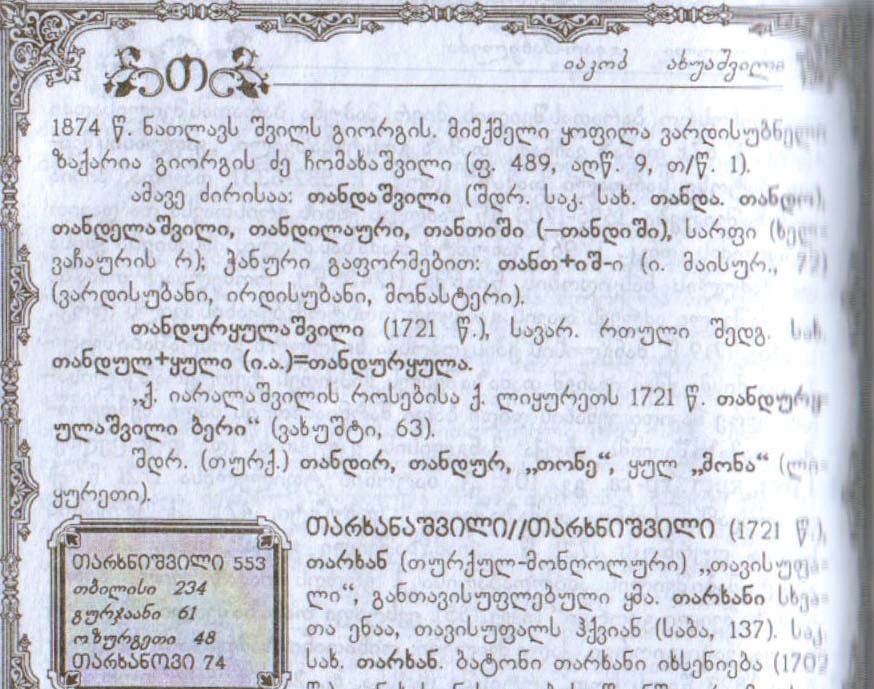 თ
იაკობ ახუაშვილი
1874 წ. ნათლავს შვილს გიორგის. მიმქმელი ყოფილა ვარდისუბნელი
ზაქარია გიორგის ძე ჩომახაშვილი (ფ. 489, აღწ. 9, თ/წ. 1).
ამავე ძირისაა: თანდაშვილი (შდრ. საკ. სახ. თანდა. თანდო),
თანდელაშვილი, თანდილაური, თანთიში (—თანდიში), სარფი (ხელ
ვაჩაურის რ); ჭანური გაფორმებით: თანთ+იშ-ი (ი. მაისურ., 77)
(ვარდისუბანი, ირდისუბანი, მონასტერი).
თანდურყულაშვილი (1721 წ.), სავარ. რთული შედგ. სახ.
თანდულ+ყული (ი.ა.)=თანდურყულა.
„ქ. იარალაშვილის როსებისა ქ. ლიყურეთს 1721 წ. თანდურყ
ულაშვილი ბერი“ (ვახუშტი, 63).
შდრ. (თურქ.) თანდირ, თანდურ, „თონე“, ყულ „მონა“ (ლი-
ყურეთი).
თარხანაშვილი//თარხნიშვილი (1721 წ.),
თარხან (თურქულ-მონღოლური) „თავისუფა-
ლი“, განთავისუფლებული ყმა. თარხანი სხვა-
თა ენაა, თავისუფალს ჰქვიან (საბა, 137). საკ.
სახ. თარხან. ბატონი თარხანი იხსენიება (1702
თარხნიშვილი 553
თბილისი 234
გურჯაანი 61
ოზურგეთი 48
თარხანოვი 74